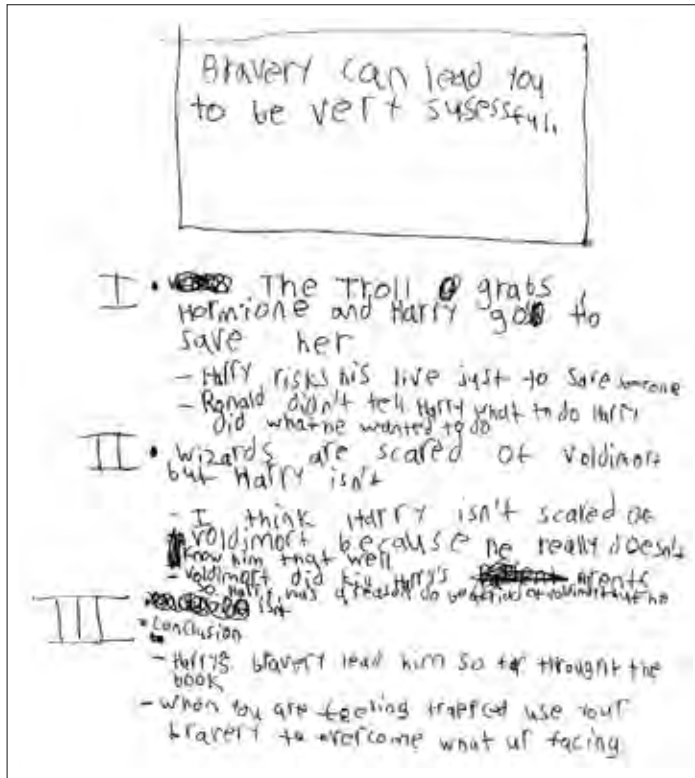 Bravery can lead you
to be very susessful.
I • The Troll grabs
Hormione and Harry go to
save her
- Harry risks his live just to save someone
- Ronald didn't tell Harry what to do Harry
did what he wanted to do
II • Wizards are scared of Voldimort
but Harry isn't
- I think Harry isn't scared of
Voldimort because he really doesn't
know him that well
- Voldimort did kill Harry's
so Harry has a reason to be of but he
III isn't
• Conclusion
- Harry's bravery lead him so far throught the
book
- When you are feeling trapped use your
bravery to overcome what ur facing